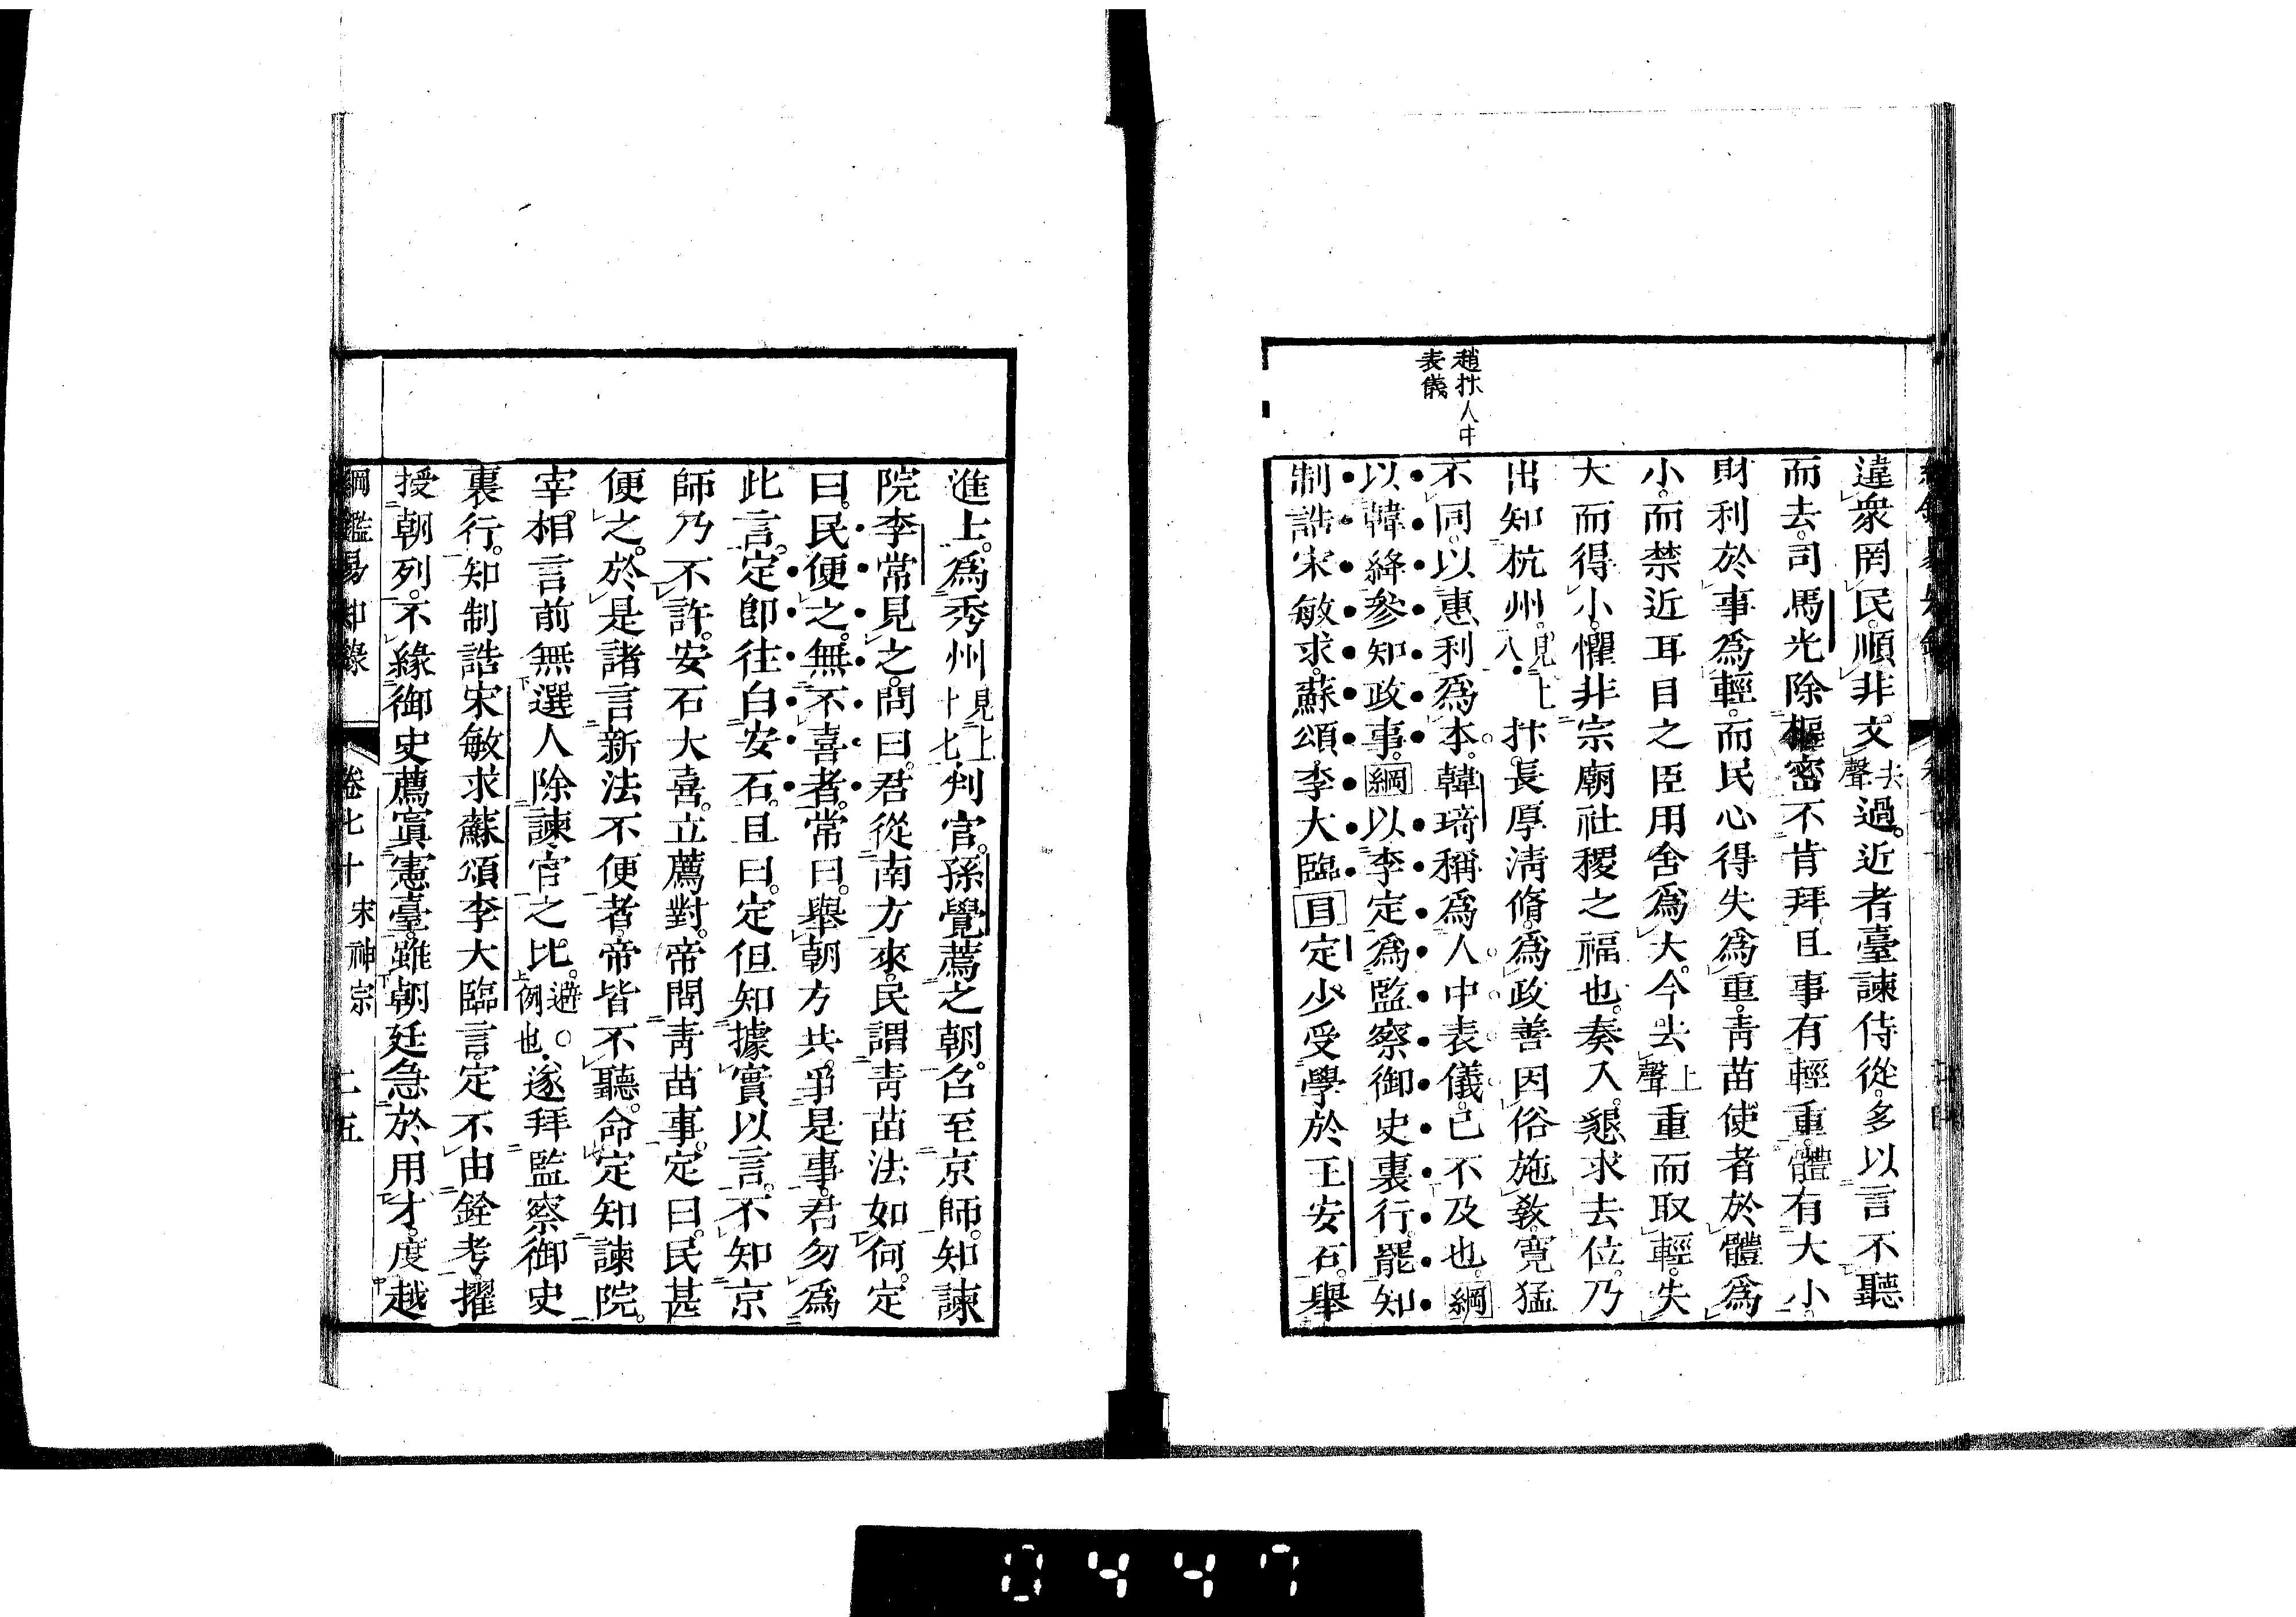 趙抃人中
表儀
違衆罔民。順非文去聲過。近者臺諫侍從。多以言不聽
而去。司馬光除樞密不肯拜。且事有輕重。體有大小。
財利於事爲輕。而民心得失爲重。靑苗使者於體爲
小。而禁近耳目之臣用舍爲大。今去上聲重而取輕。失
大而得小。懼非宗廟社稷之福也。奏入。懇求去位。乃
出知杭州。見上八。抃長厚淸脩。爲政善因俗施敎。寬猛
不同。以惠利爲本。韓琦稱爲人中表儀。己不及也。綱
以韓絳參知政事。綱以李定爲監察御史裏行。罷知
制誥宋敏求。蘇頌。李大臨。目定少受學於王安石。舉
進士。爲秀州見上十七判官。孫覺薦之朝。召至京師。知諫
院李常見之。問曰。君從南方來。民謂靑苗法如何。定
曰。民便之。無不喜者。常曰。舉朝方共爭是事。君勿爲
此言。定卽往白安石。且曰。定但知據實以言。不知京
師乃不許。安石大喜。立薦對。帝問靑苗事。定曰。民甚
便之。於是諸言新法不便者。帝皆不聽。命定知諫院。
宰相言前無選人除諫官之比。避。上例也。遂拜監察御史
裏行。知制誥宋敏求蘇頌李大臨言。定不由銓考。擢
授朝列。不緣御史薦寘憲臺。雖朝廷急於用才。度越
綱鑑易知錄 卷七十 宋神宗 二五
0447